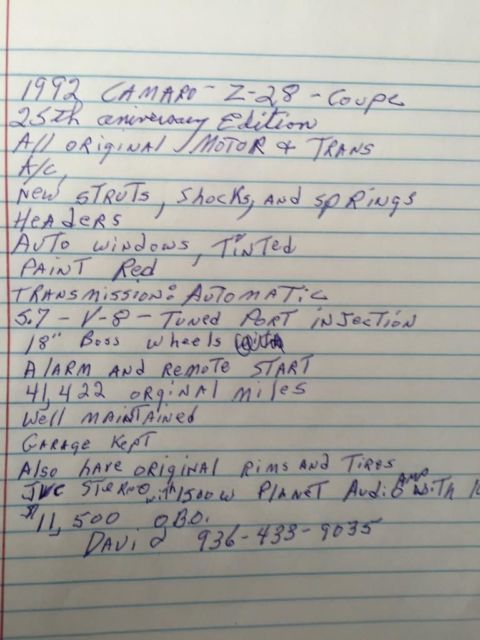 1992 CAMARO - Z-28 - COUPE
25th aniversary Edition
All ORIGINAL MOTOR & TRANS
A/C,
New STRUTS, SHocKs, AND SPRINGS
HeADeRS
AUTO WINDOWS, TINTED
PAINT Red
TRANSMISSION: AUTOMATIC
5.7 - V-8 - TUNED PORT INJSECTION
18" BOSS WHeels
AlARM AND REMOTE START
41,422 ORGINAL MIles
Well MAINTAINED
GARAGE KEPT
Also HAVE ORIGINAL RIMS AND TIRES
JVC STERNO WITH 1500W PLANET AUDIO AMP WITH
$11,500 OBO.
DAVID 936-433-9035